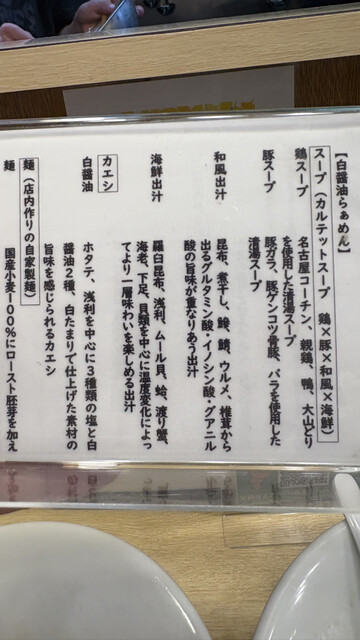 【白醤油らぁめん】
スープ（カルテットスープ 鶏×豚×和風×海鮮）
鶏スープ 名古屋コーチン、親鶏、鴨、大山どり
を使用した清湯スープ
豚スープ 豚ガラ、豚ゲンコツ骨豚、バラを使用した
清湯スープ
和風出汁 昆布、煮干し、鰺、鯖、ウルメ、椎茸から
出るグルタミン酸・イノシン酸・グアニル
酸の旨味が重なりあう出汁
海鮮出汁 羅臼昆布、浅利、ムール貝、蛤、渡り蟹、
海老、下足、貝類を中心に温度変化によっ
てより一層味わいを楽しめる出汁
カエシ
白醤油 ホタテ、浅利を中心に3種類の塩と白
醤油2種、白たまりで仕上げた素材の
旨味を感じられるカエシ
麺（店内作りの自家製麺）
麺 国産小麦100％にロースト胚芽を加え